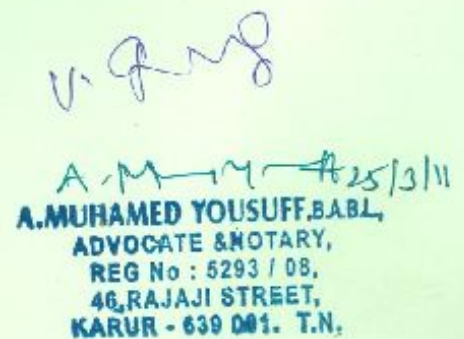 25/3/11
A.MUHAMED YOUSUFF,B.A.B.L.,
ADVOCATE & NOTARY,
REG No : 5293 / 08,
46,RAJAJI STREET,
KARUR - 639 001. T.N.